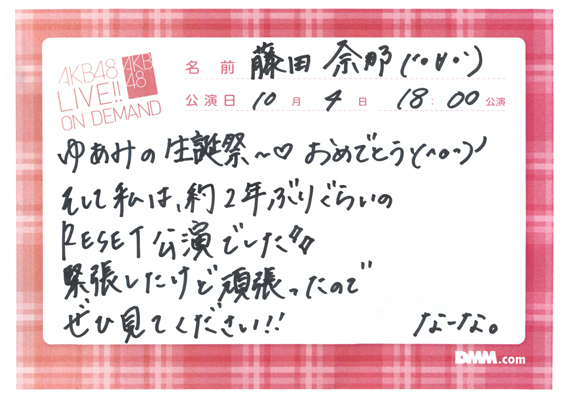 AKB48
LIVE!!
ON DEMAND
AKB
48
名前 藤田 奈那(*°∀°*)
公演日 10月 4日 18:00公演
ゆあみの生誕祭〜♡ おめでとう(^o^)ノ
そして私は、約2年ぶりぐらいの
RESET公演でした
緊張したけど頑張ったので
ぜひ見てください!!
なーな。
DMM.com